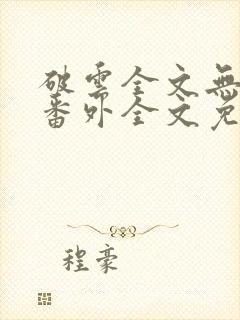 破雲全文無
番外全文免
程豪